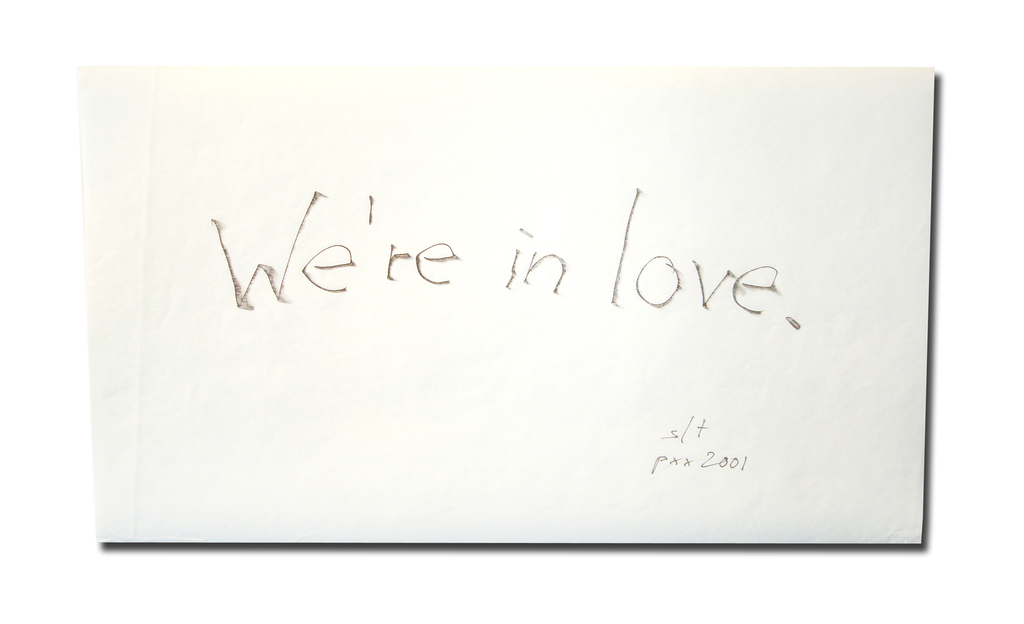 We're in love.
s/t
pxx 2001